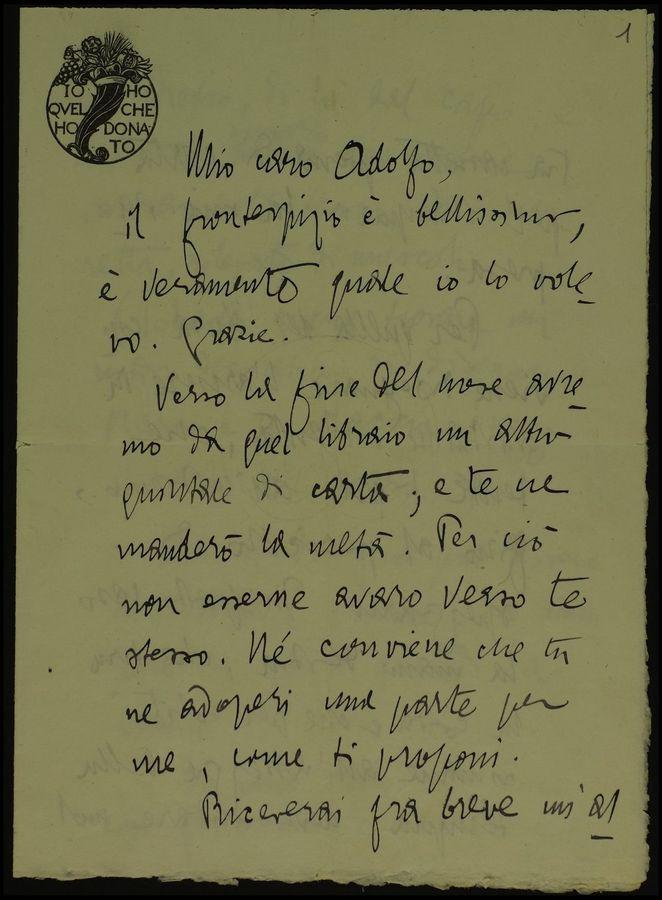 1
IO HO
QVEL CHE
HO DONA
TO
Mio caro Adolfo,
il frontespizio è bellissimo,
è veramente quale io lo vole
vo. Grazie.
Verso la fine del mese avre
mo da quel libraio un altro
quintale di carta; e te ne
manderò la metà. Per ciò
non esserne avaro verso te
stesso. Né conviene che tu
ne adoperi una parte per
me, come ti proponi.
Riceverai fra breve un'al